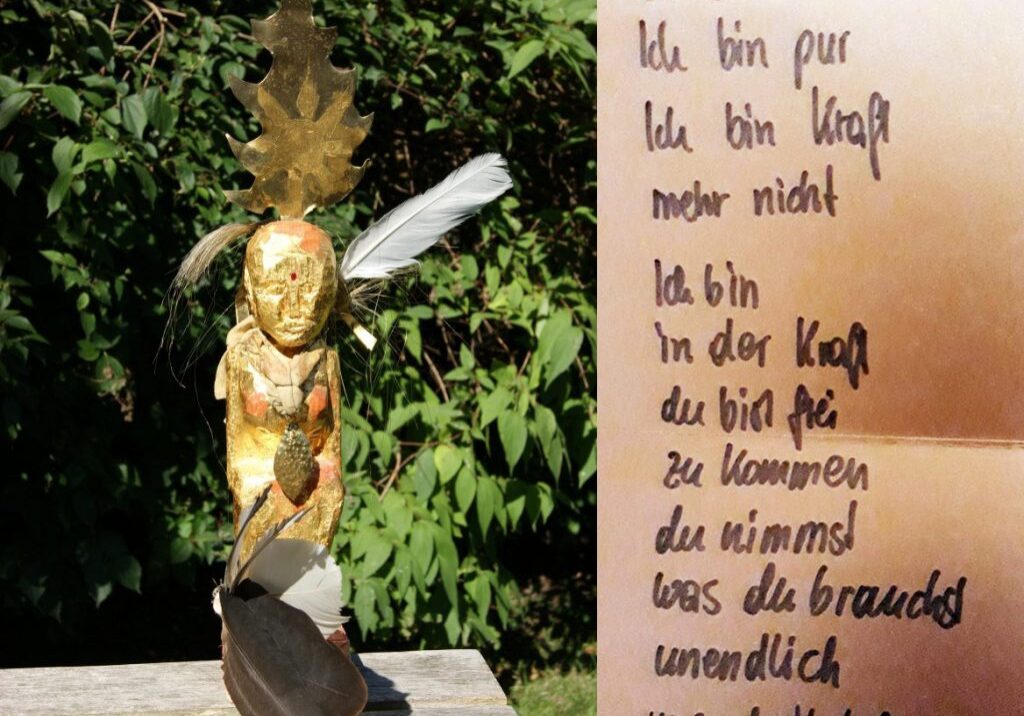 Ich bin pur
Ich bin Kraft
mehr nicht
Ich bin
in der Kraft
du bist frei
zu kommen
du nimmst
was du brauchst
unendlich